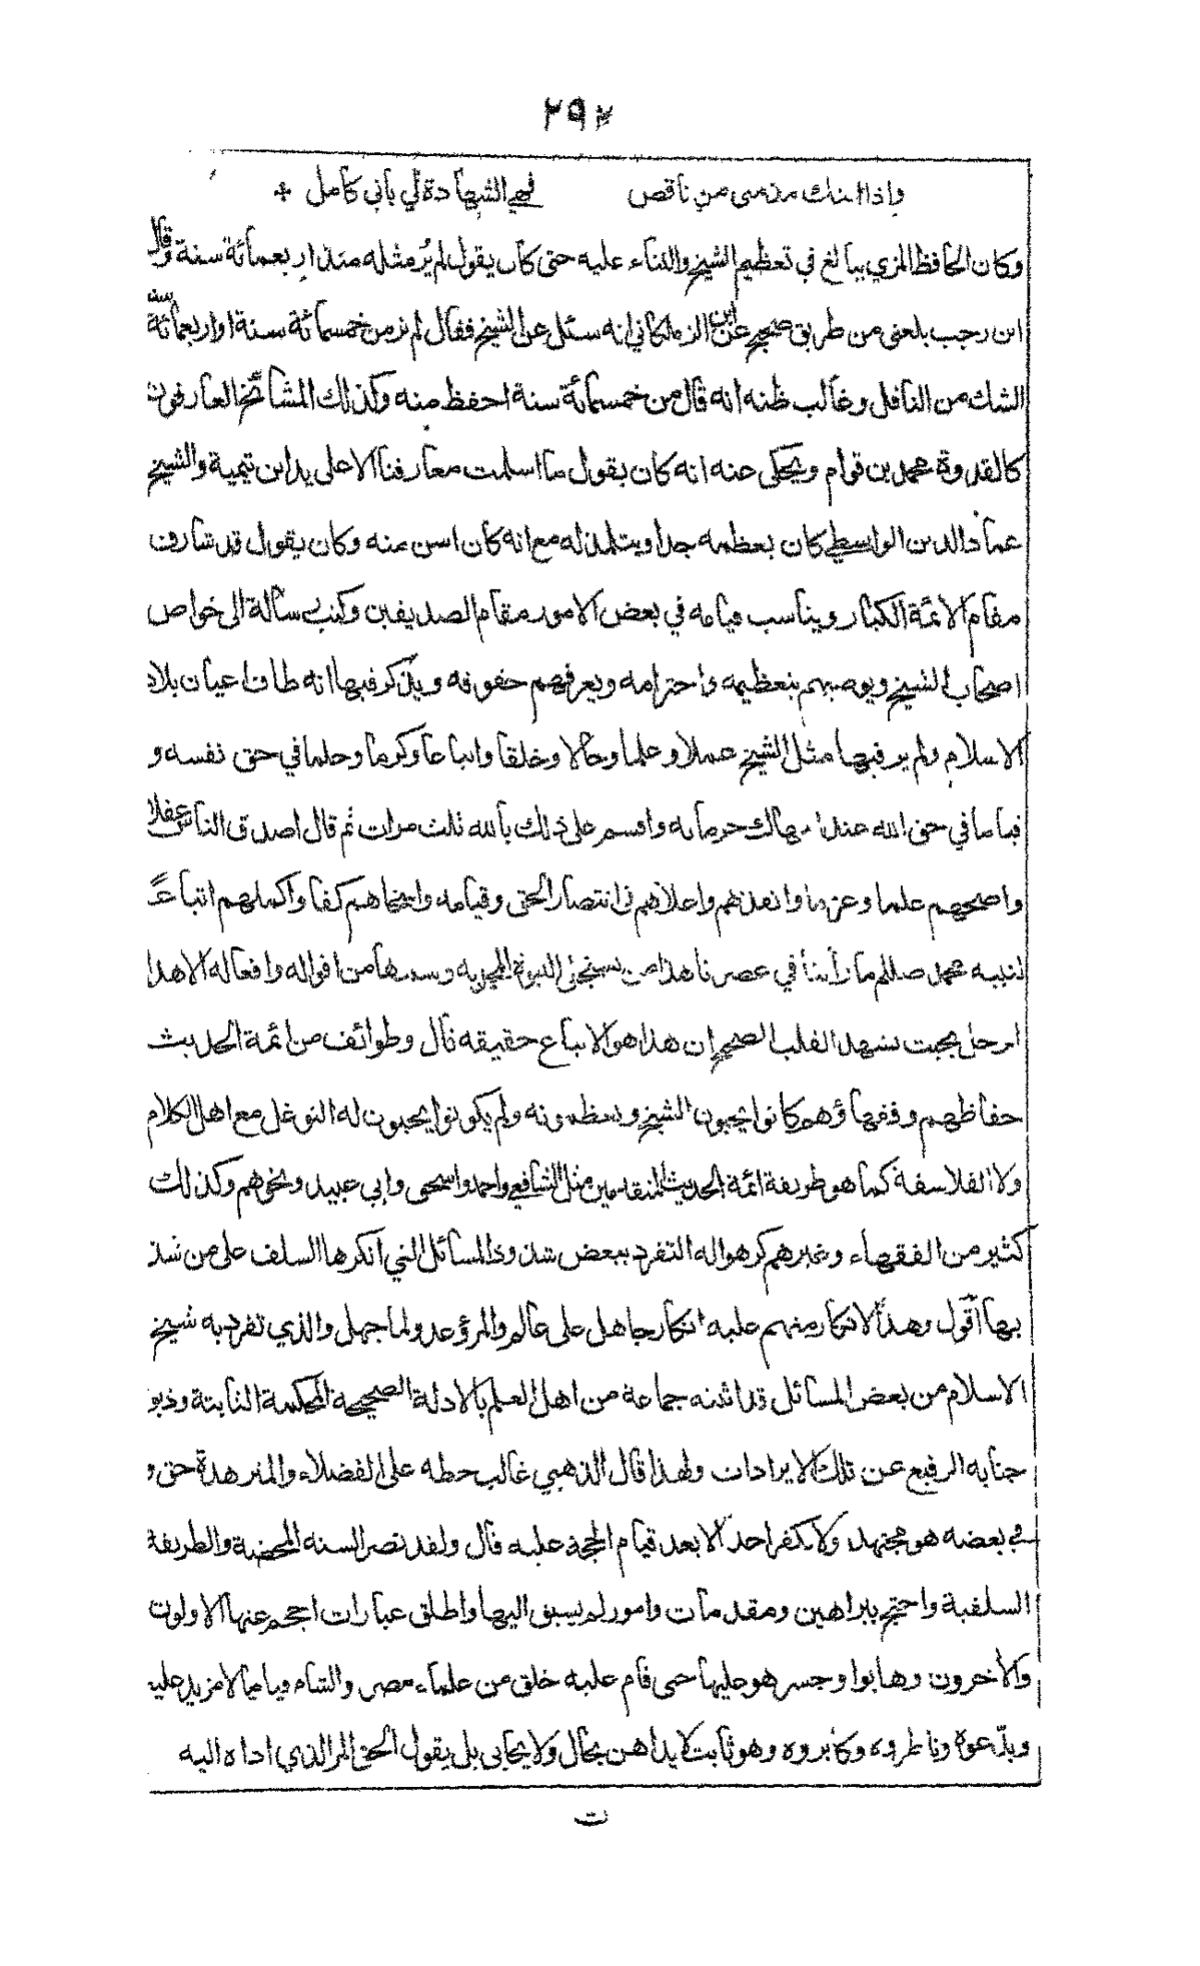 ٢٩٣
واذا اتتك مذمتي من ناقص فهي الشهادة لي باني كامل
وكان الحافظ المزي يبالغ في تعظيم الشيخ والثناء عليه حتى كان يقول لم ير مثله منذ اربعمائة سنة وقال
ابن رجب بلغني من طريق صحيح عن ابن الزملكاني انه سئل عن الشيخ فقال لم نر من خمسمائة سنة او اربعمائة سنة
الشك من الناقل وغالب ظنه انه قال من خمسمائة سنة احفظ منه وكذلك المشائخ العارفون
كالقدوة محمد بن قوام ويحكى عنه انه كان يقول ما اسلمت معارفنا الا على يد ابن تيمية والشيخ
عماد الدين الواسطي كان يعظمه جدا ويتلمذ له مع انه كان اسن منه وكان يقول قد شارف
مقام الائمة الكبار ويناسب قيامه في بعض الامور مقام الصديقين وكتب رسالة الى خواص
اصحاب الشيخ ويوصيهم بتعظيمه واحترامه ويعرفهم حقوقه ويذكر فيها انه طاف اعيان بلاد
الاسلام ولم ير فيها مثل الشيخ عملا وعلما وحالا وخلقا واتباعا وكرما وحلما في حق نفسه و
قياما في حق الله عند انتهاك حرماته واقسم على ذلك بالله ثلث مرات ثم قال اصدق الناس عقلا
واصحهم علما وعزما وانفذهم واعلاهم في انتصار الحق وقيامه واسخاهم كفا واكملهم اتباعًا
لنبيه محمد صللم ما رأينا في عصرنا هذا من يستجلى النبوة المحمدية وسنتها من اقواله وافعاله الا هذا
الرجل بحيث يشهد القلب الصحيح ان هذا هو الاتباع حقيقه قال وطوائف من ائمة الحديث
حفاظهم وفقهاؤهم كانوا يحبون الشيخ ويعظمونه ولم يكونوا يحبون له التوغل مع اهل الكلام
ولا الفلاسفة كما هو طريقة ائمة الحديث المتقدمين مثل الشافعي واحمد واسحق وابي عبيد ونحوهم وكذلك
كثير من الفقهاء وغيرهم كرهوا له التفرد ببعض شذوذ المسائل التي انكرها السلف على من شذ
بها اقول وهذا الانكار منهم عليه انكار جاهل على عالم والمرؤ عدو لما جهل والذي تفرد به شيخ
الاسلام من بعض المسائل قد اثبته جماعة من اهل العلم بالادلة الصحيحة المحكمة الثابتة وذبوا
جنابه الرفيع عن تلك الايرادات ولهذا قال الذهبي غالب حطه على الفضلاء والمتزهدة حق و
في بعضه هو مجتهد ولا يكفر احدا الا بعد قيام الحجة عليه قال ولقد نصر السنه المحضة والطريقة
السلفية واحتج ببراهين ومقدمات وامور لم يسبق اليها واطلق عبارات احجم عنها الاولون
والأخرون وهابوا وجسر هو عليها حتى قام عليه خلق من علماء مصر والشام قياما لا مزيد عليه
وبدّعوه وناظروه وكابروه وهو ثابت لا يداهن بحال ولا يحابى بل يقول الحق المر الذي اداه اليه